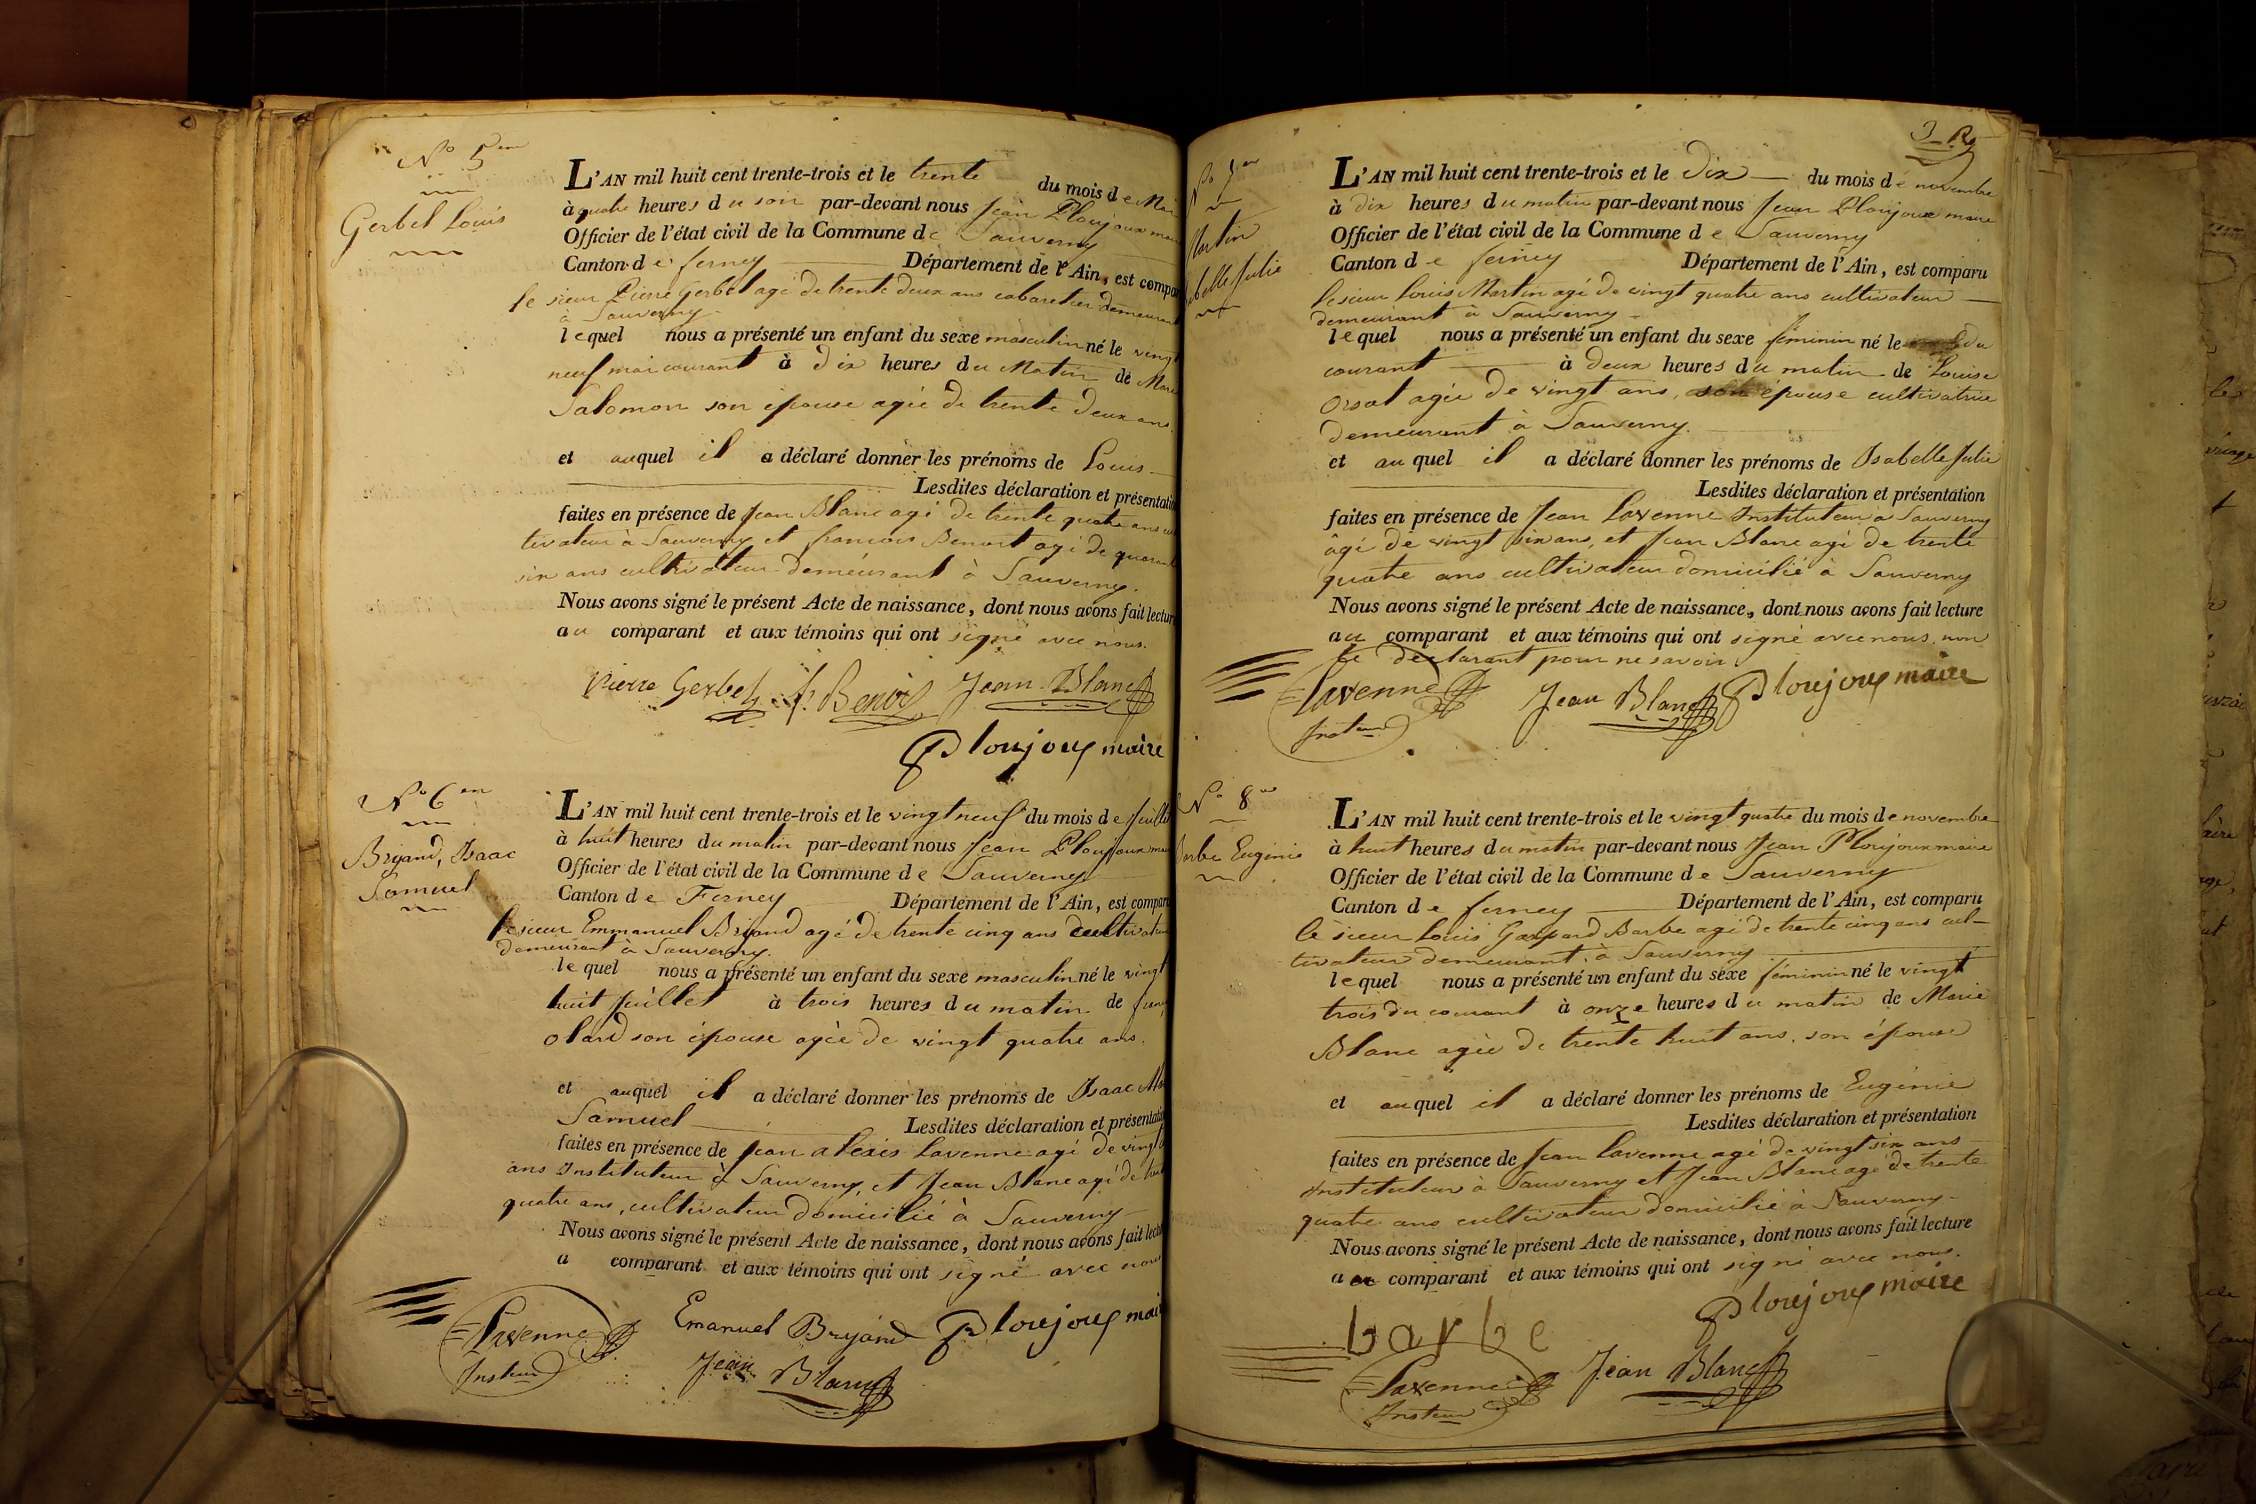 N.o 5em
Gerbel Louis
L'AN mil huit cent trente-trois et le trente du mois de Mai
à quatre heures du soir par-devant nous Jean Ploujoux maire
Officier de l'état civil de la Commune de Sauverny
Canton de ferney Département de l'Ain, est compar
le sieur Pierre Gerbel agé de trente deux ans cabaretier demeurant
à Sauverny.
lequel nous a présenté un enfant du sexe masculin né le vingt
neuf mai courant à dix heures du Matin de Marie
Salomon son épouse agée de trente deux ans.
et auquel il a déclaré donner les prénoms de Louis
Lesdites déclaration et présentation
faites en présence de Jean Blanc agé de trente quatre ans cul
tivateur à Sauverny et francois Benoit agé de quarante
six ans cultivateur demeurant à Sauverny.
Nous avons signé le présent Acte de naissance, dont nous avons fait lecture
au comparant et aux témoins qui ont signé avec nous.
Pierre Gerbel f. Benoit Jean Blanc
Ploujoux maire
N.o 6em
Brijand, Isaac
Samuel
L'AN mil huit cent trente-trois et le vingt neuf du mois de juillet
à huit heures du matin par-devant nous Jean Ploujoux maire
Officier de l'état civil de la Commune de Sauverny
Canton de Ferney Département de l'Ain, est comparu
le sieur Emmanuel Brijand agé de trente cinq ans cultivateur
demeurant à Sauverny.
lequel nous a présenté un enfant du sexe masculin né le vingt
huit juillet à trois heures du matin de
olard son épouse agée de vingt quatre ans.
et auquel il a déclaré donner les prénoms de Isaac
Samuel Lesdites déclaration et présentation
faites en présence de Jean alexis Lavenne agé de vingt
ans Instituteur à Sauverny, et Jean Blanc agé de trente
quatre ans, cultivateur domicilié à Sauverny
Nous avons signé le présent Acte de naissance, dont nous avons fait lecture
a comparant et aux témoins qui ont signé avec nous
Lavenne Emanuel Brijand Ploujoux maire
Insteur Jean Blanc
3 R
N.o 7em
Martin
Isabelle Julie
L'AN mil huit cent trente-trois et le Dix du mois de novembre
à dix heures du matin par-devant nous Jean Ploujoux maire
Officier de l'état civil de la Commune de Sauverny
Canton de ferney Département de l'Ain, est comparu
le sieur Louis Martin agé de vingt quatre ans cultivateur
demeurant à Sauverny
lequel nous a présenté un enfant du sexe féminin né le du
courant à deux heures du matin de Louise
Orsat agée de vingt ans, son épouse cultivatrice
demeurant à Sauverny.
et auquel il a déclaré donner les prénoms de Isabelle Julie
Lesdites déclaration et présentation
faites en présence de Jean Lavenne Instituteur à Sauverny
âgé de vingt six ans, et Jean Blanc agé de trente
quatre ans cultivateur domicilié à Sauverny
Nous avons signé le présent Acte de naissance, dont nous avons fait lecture
au comparant et aux témoins qui ont signé avec nous, non
le déclarant pour ne savoir.
Lavenne Jean Blanc Ploujoux maire
Insteur
N.o 8em
Barbe Eugénie
L'AN mil huit cent trente-trois et le vingt quatre du mois de novembre
à huit heures du matin par-devant nous Jean Ploujoux maire
Officier de l'état civil de la Commune de Sauverny
Canton de ferney Département de l'Ain, est comparu
le sieur Louis Gaspard Barbe agé de trente cinq ans cul-
tivateur demeurant à Sauverny
lequel nous a présenté un enfant du sexe féminin né le vingt
trois du courant à onze heures du matin de Marie
Blanc agée de trente huit ans, son épouse
et auquel il a déclaré donner les prénoms de Eugénie
Lesdites déclaration et présentation
faites en présence de Jean Lavenne agé de vingt six ans
Instituteur à Sauverny et Jean Blanc agé de trente
quatre ans cultivateur domicilié à Sauverny
Nous avons signé le présent Acte de naissance, dont nous avons fait lecture
au comparant et aux témoins qui ont signé avec nous.
barbe Ploujoux maire
Lavenne Jean Blanc
Insteur